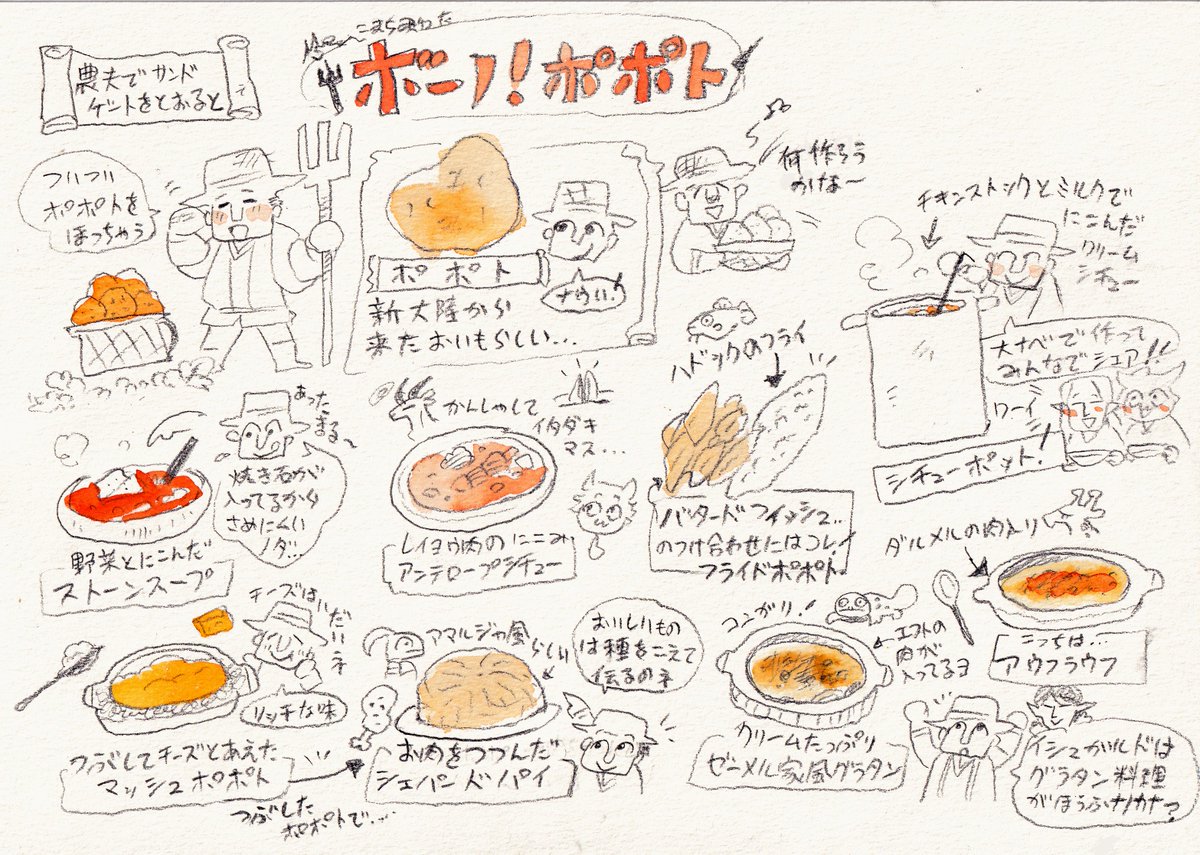 こまちまわた
ボーノ!ポポト
農夫でサンド
ゲントをとおると
ついつい
ポポトを
ほっちゃう
ポポト
新大陸から
来たおいもらしい…
ナウい!
何作ろう
かな〜
チキンストックとミルクで
にこんだ
クリーム
シチュー
大ナベで作って
みんなでシェア!!
ワーイ
シチューポット!
あった
まる〜
焼き石が
入ってるから
さめにくい
ノダ…
野菜とにこんだ
ストーンスープ
かんしゃして
イタダキ
マス…
レイヨウ肉のにこみ
アンテロープシチュー
ハドックのフライ
バタードフィッシュ…
のつけ合わせにはコレ!
フライドポポト
ダルメルの肉入りいろ
こっちは…
アウフラウフ
チーズは
だいじネ
リッチな味
つぶしてチーズとあえた
マッシュポポト
つぶした
ポポトで…
アマルジャ風
らしい
おいしいもの
は種をこえて
伝るのネ
お肉をつつんだ
シェパードパイ
コンガリ!
エフトの
肉が
入ってるヨ
クリームたっぷり
ゼーメル家風グラタン
イシュガルドは
グラタン料理
がほうふナノカナ?